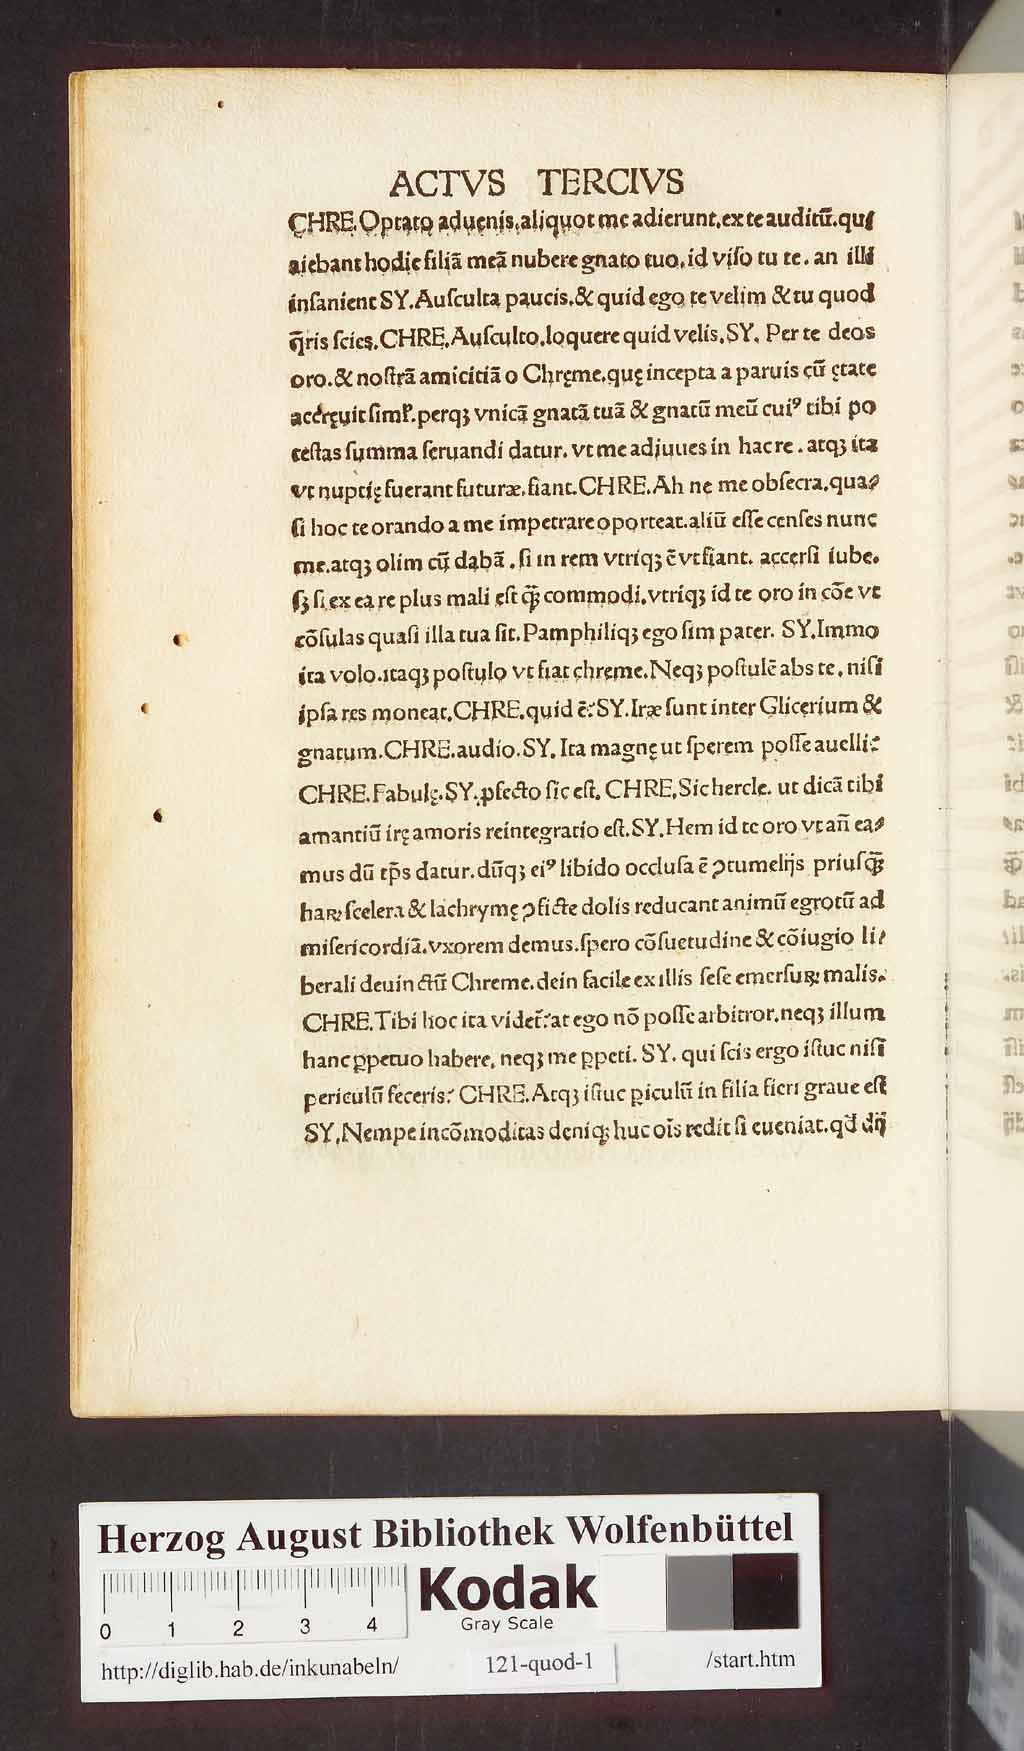 ACTVS TERCIVS
CHRE.Optato aduenis.aliquot me adierunt.ex te auditū.qui
aiebant hodie filiā meā nubere gnato tuo.id viſo tu te. an illi
inſanient SY.Auſculta paucis.& quid ego te velim & tu quod
q̄ris ſcies.CHRE.Auſculto.loquere quid velis.SY. Per te deos
oro.& noſtrā amicitiā o Chręme.quę incepta a paruis cū ętate
accręuit ſimł.perqꝫ vnicā gnatā tuā & gnatū meū cuiꝰ tibi po
teſtas ſumma ſeruandi datur. vt me adiuues in hac re . atqꝫ ita
vt nuptię fuerant futuræ.fiant.CHRE.Ah ne me obſecra.qua⸗
ſi hoc te orando a me impetrare oporteat.aliū eſſe cenſes nunc
me.atqꝫ olim cū dabā . ſi in rem vtriqꝫ ē vt fiant. accerſi iube.
ſꝫ ſi ex ea re plus mali eſt q̄ꝫ commodi.vtriqꝫ id te oro in cōe vt
cōſulas quaſi illa tua ſit.Pamphiliqꝫ ego ſim pater. SY.Immo
ita volo.itaqꝫ poſtulo vt fiat chręme.Neqꝫ poſtulē abs te, niſi
ipſa res moneat.CHRE.quid ē? SY.Iræ ſunt inter Glicerium &
gnatum.CHRE.audio.SY. Ita magnę ut ſperem poſſe auelli?
CHRE.Fabulę.SY.ꝓfecto ſic eſt. CHRE.Sic hercle. ut dicā tibi
amantiū irę amoris reintegratio eſt.SY.Hem id te oro vt an̄ ea⸗
mus dū tp̄s datur.dūqꝫ eiꝰ libido occluſa ē ꝯtumelijs priuſq̄ꝫ
haꝝ ſcelera & lachrymę ꝯficte dolis reducant animū egrotū ad
miſericordiā.vxorem demus.ſpero cōſuetudine & cōiugio li⸗
berali deuinctū Chreme.dein facile ex illis ſeſe emerſuꝝ malis.
CHRE.Tibi hoc ita videt̄? at ego nō poſſe arbitror.neqꝫ illum
hanc ꝑpetuo habere, neqꝫ me ꝑpeti. SY. qui ſcis ergo iſtuc niſi
periculū feceris? CHRE.Atqꝫ iſtuc ꝑiculū in filia fieri graue eſt
SY.Nempe incōmoditas deniqꝫ huc oīs redit ſi eueniat.qd̄ dij
Herzog August Bibliothek Wolfenbüttel
0 1 2 3 4
Kodak
Gray Scale
http://diglib.hab.de/inkunabeln/ 121-quod-1 /start.htm